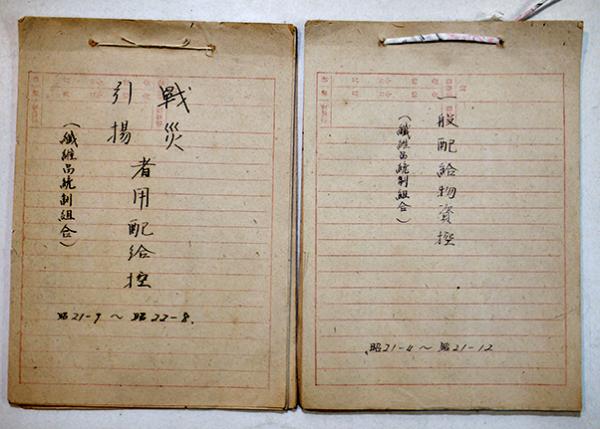 戦災
引揚
者用配給控
(纎維品統制組合)
昭21-9～昭22-8.
一般配給物資控
(纎維品統制組合)
昭21-4～昭21-12